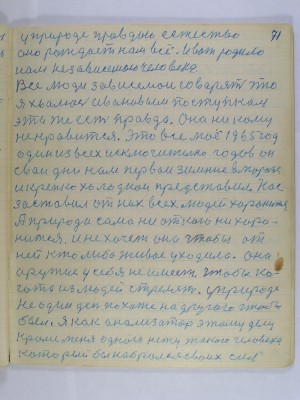 71
у природе правдою, естество
оно рождает нам всё. И вот родило
нам независимого человека.
Все люди зависимои говорят что
я хвалюсь Ивановым поступкам
эта же есть правда. Она ни кому
не нравится. Это все моё 1965 год
один из всех исключительно годов он
свои дни нам первои зимние с мороз
и крепко холодном представил. Нас
заставил от них всех людей хоронится
А природа сама ни от кого ни хоро-
нится. и не хочет она чтобы от
ней кто либо живое уходило. Она
оружие у себя не имеет, чтобы ко-
гото из людей стрелять. у природе
не один ден похоже на другого чтобы
был. Я как анализатор этому делу
кроме меня одного нету такого человека
который бы набрался своих сил